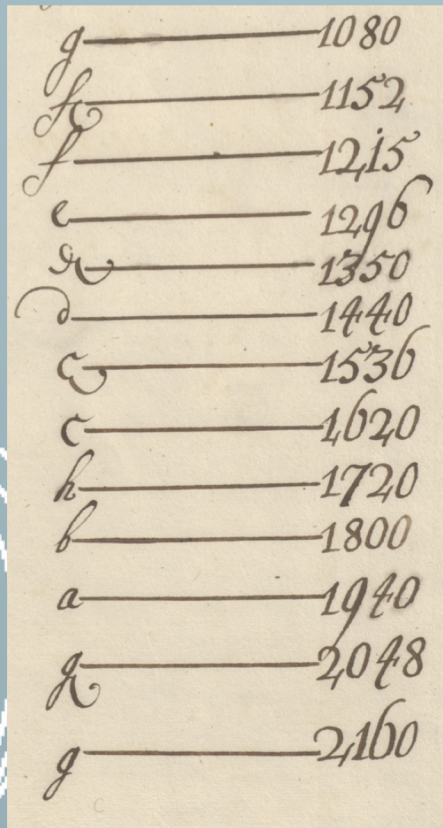 g 1080
fis 1152
f 1215
e 1296
dis 1350
d 1440
cis 1536
c 1620
h 1720
b 1800
a 1940
gis 2048
g 2160